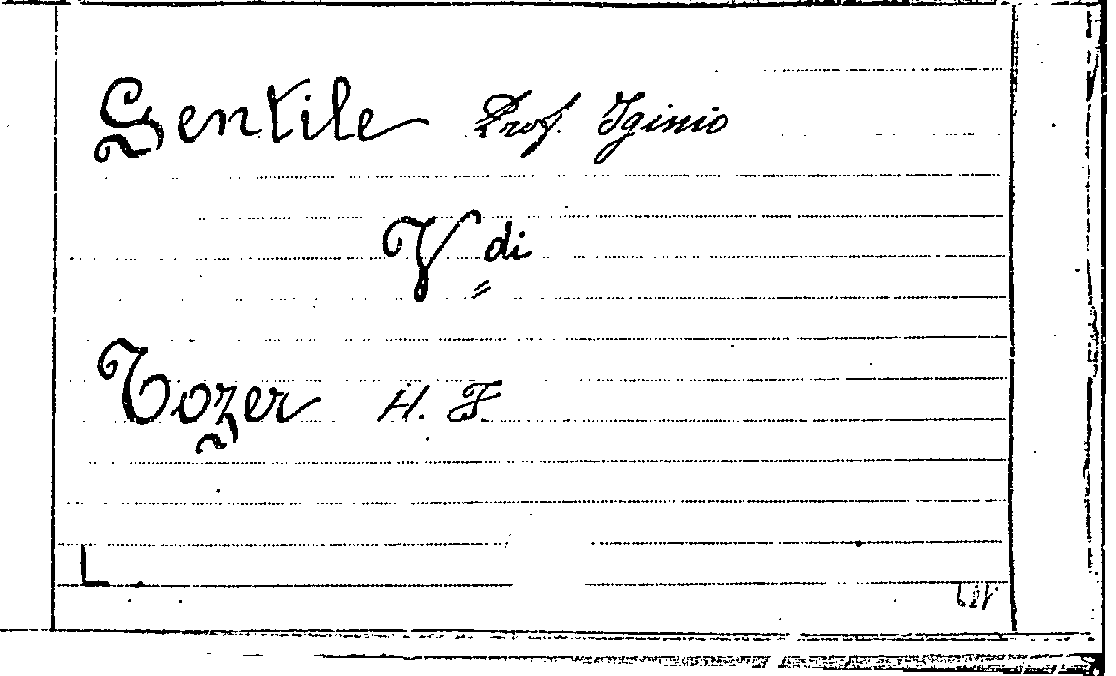 Gentile Prof. Iginio
V di
Tozer H. F.
L.